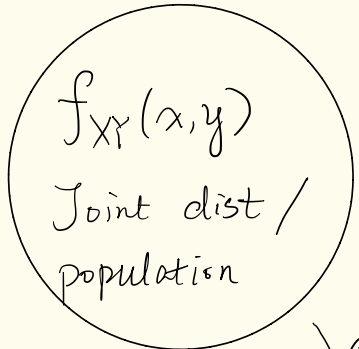 f_{XY}(x,y)
Joint dist /
population